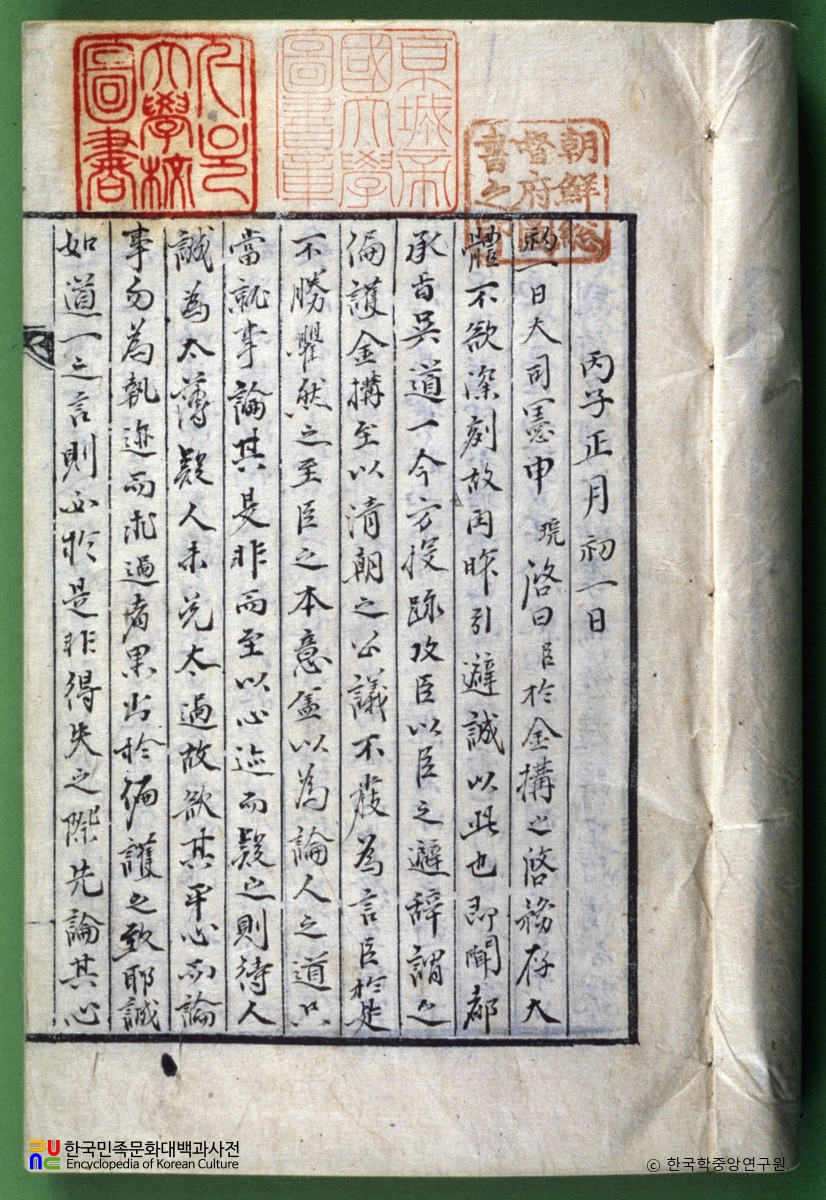 朝鮮総
督府圖
書之印
京城帝
國大學
圖書章
서울
大學校
圖書
丙子正月初一日
初一日大司憲申琓啓曰臣於金構之啓務存大
體不欲深刻故再昨引避誠以此也即聞都
承旨吳道一今方投疏攻臣以臣之避辞謂之
偏護金構至以清朝之公議不嚴為言臣於是
不勝瞿然之至臣之本意盖以為論人之道只
當就事論其是非而至以心迹而疑之則待人
誠為太薄疑人未免太過故欲其平心而論
事勿為執迹而求過者果出於偏護之致耶誠
如道一之言則必於是非得失之際先論其心
한국민족문화대백과사전
Encyclopedia of Korean Culture
ⓒ 한국학중앙연구원